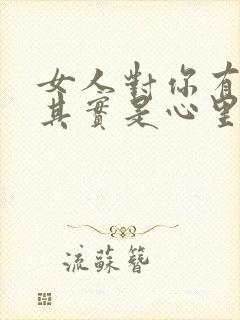 女人對你有
其實是心里
流蘇簪